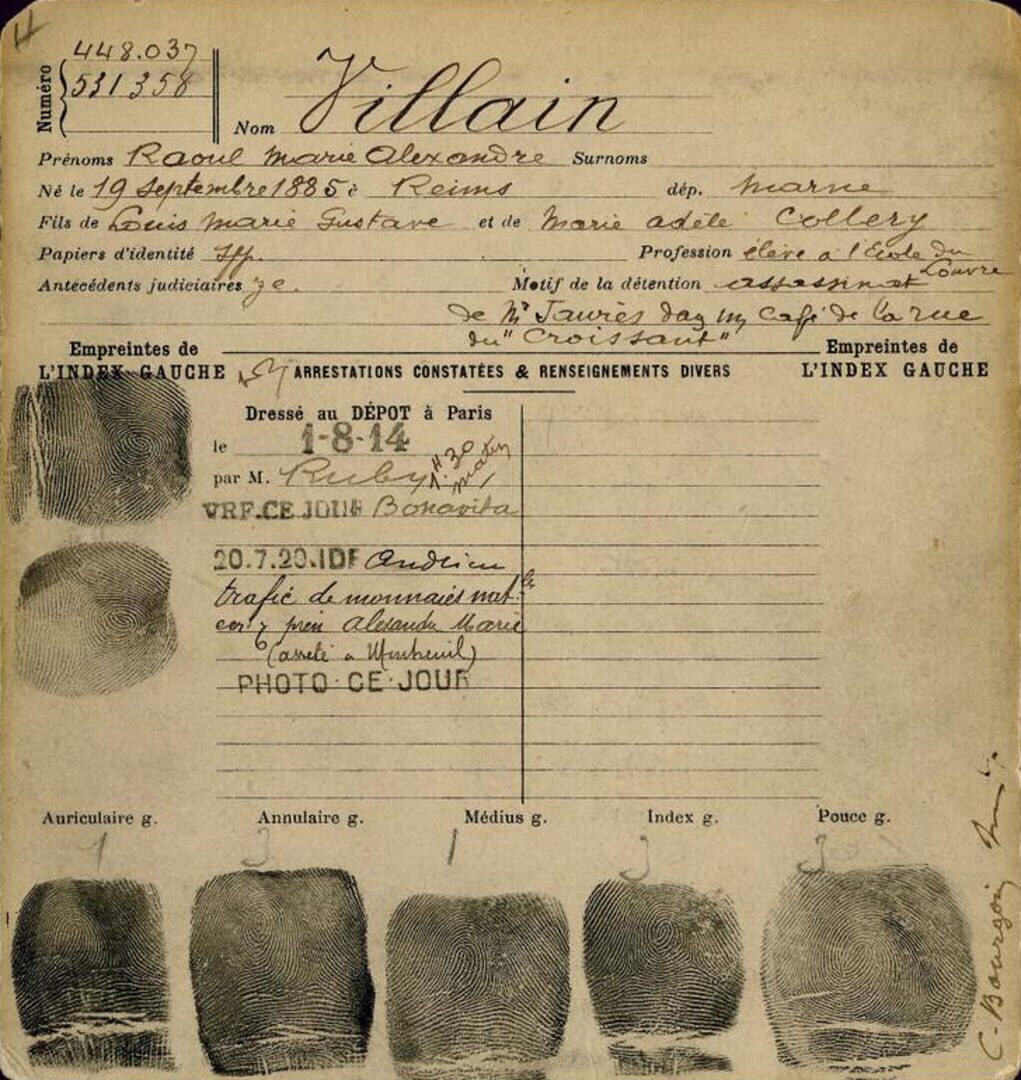 448.037
Numéro 531358
Nom Villain
Prénoms Raoul Marie Alexandre Surnoms
Né le 19 Septembre 1885 à Reims dép. Marne
Fils de Louis Marie Gustave et de Marie Adèle Collery
Papiers d'identité Profession élève à l'Ecole du Louvre
Antécédents judiciaires Motif de la détention assassinat
de Mr Jaurès dans un Café de la rue
du "Croissant"
Empreintes de L'INDEX GAUCHE
Empreintes de L'INDEX GAUCHE
ARRESTATIONS CONSTATÉES & RENSEIGNEMENTS DIVERS
Dressé au DÉPOT à Paris
le 1-8-14
par M. Ruby 1H30 matin
VRF.CE JOUR Bonavita
20.7.20.IDF Andrieu
trafic de monnaies nat.les
Alexandre Marie
(arrêté à Montreuil)
PHOTO CE JOUR
Auriculaire g. Annulaire g. Médius g. Index g. Pouce g.
1 3 1 3 3
C. Bourgoin